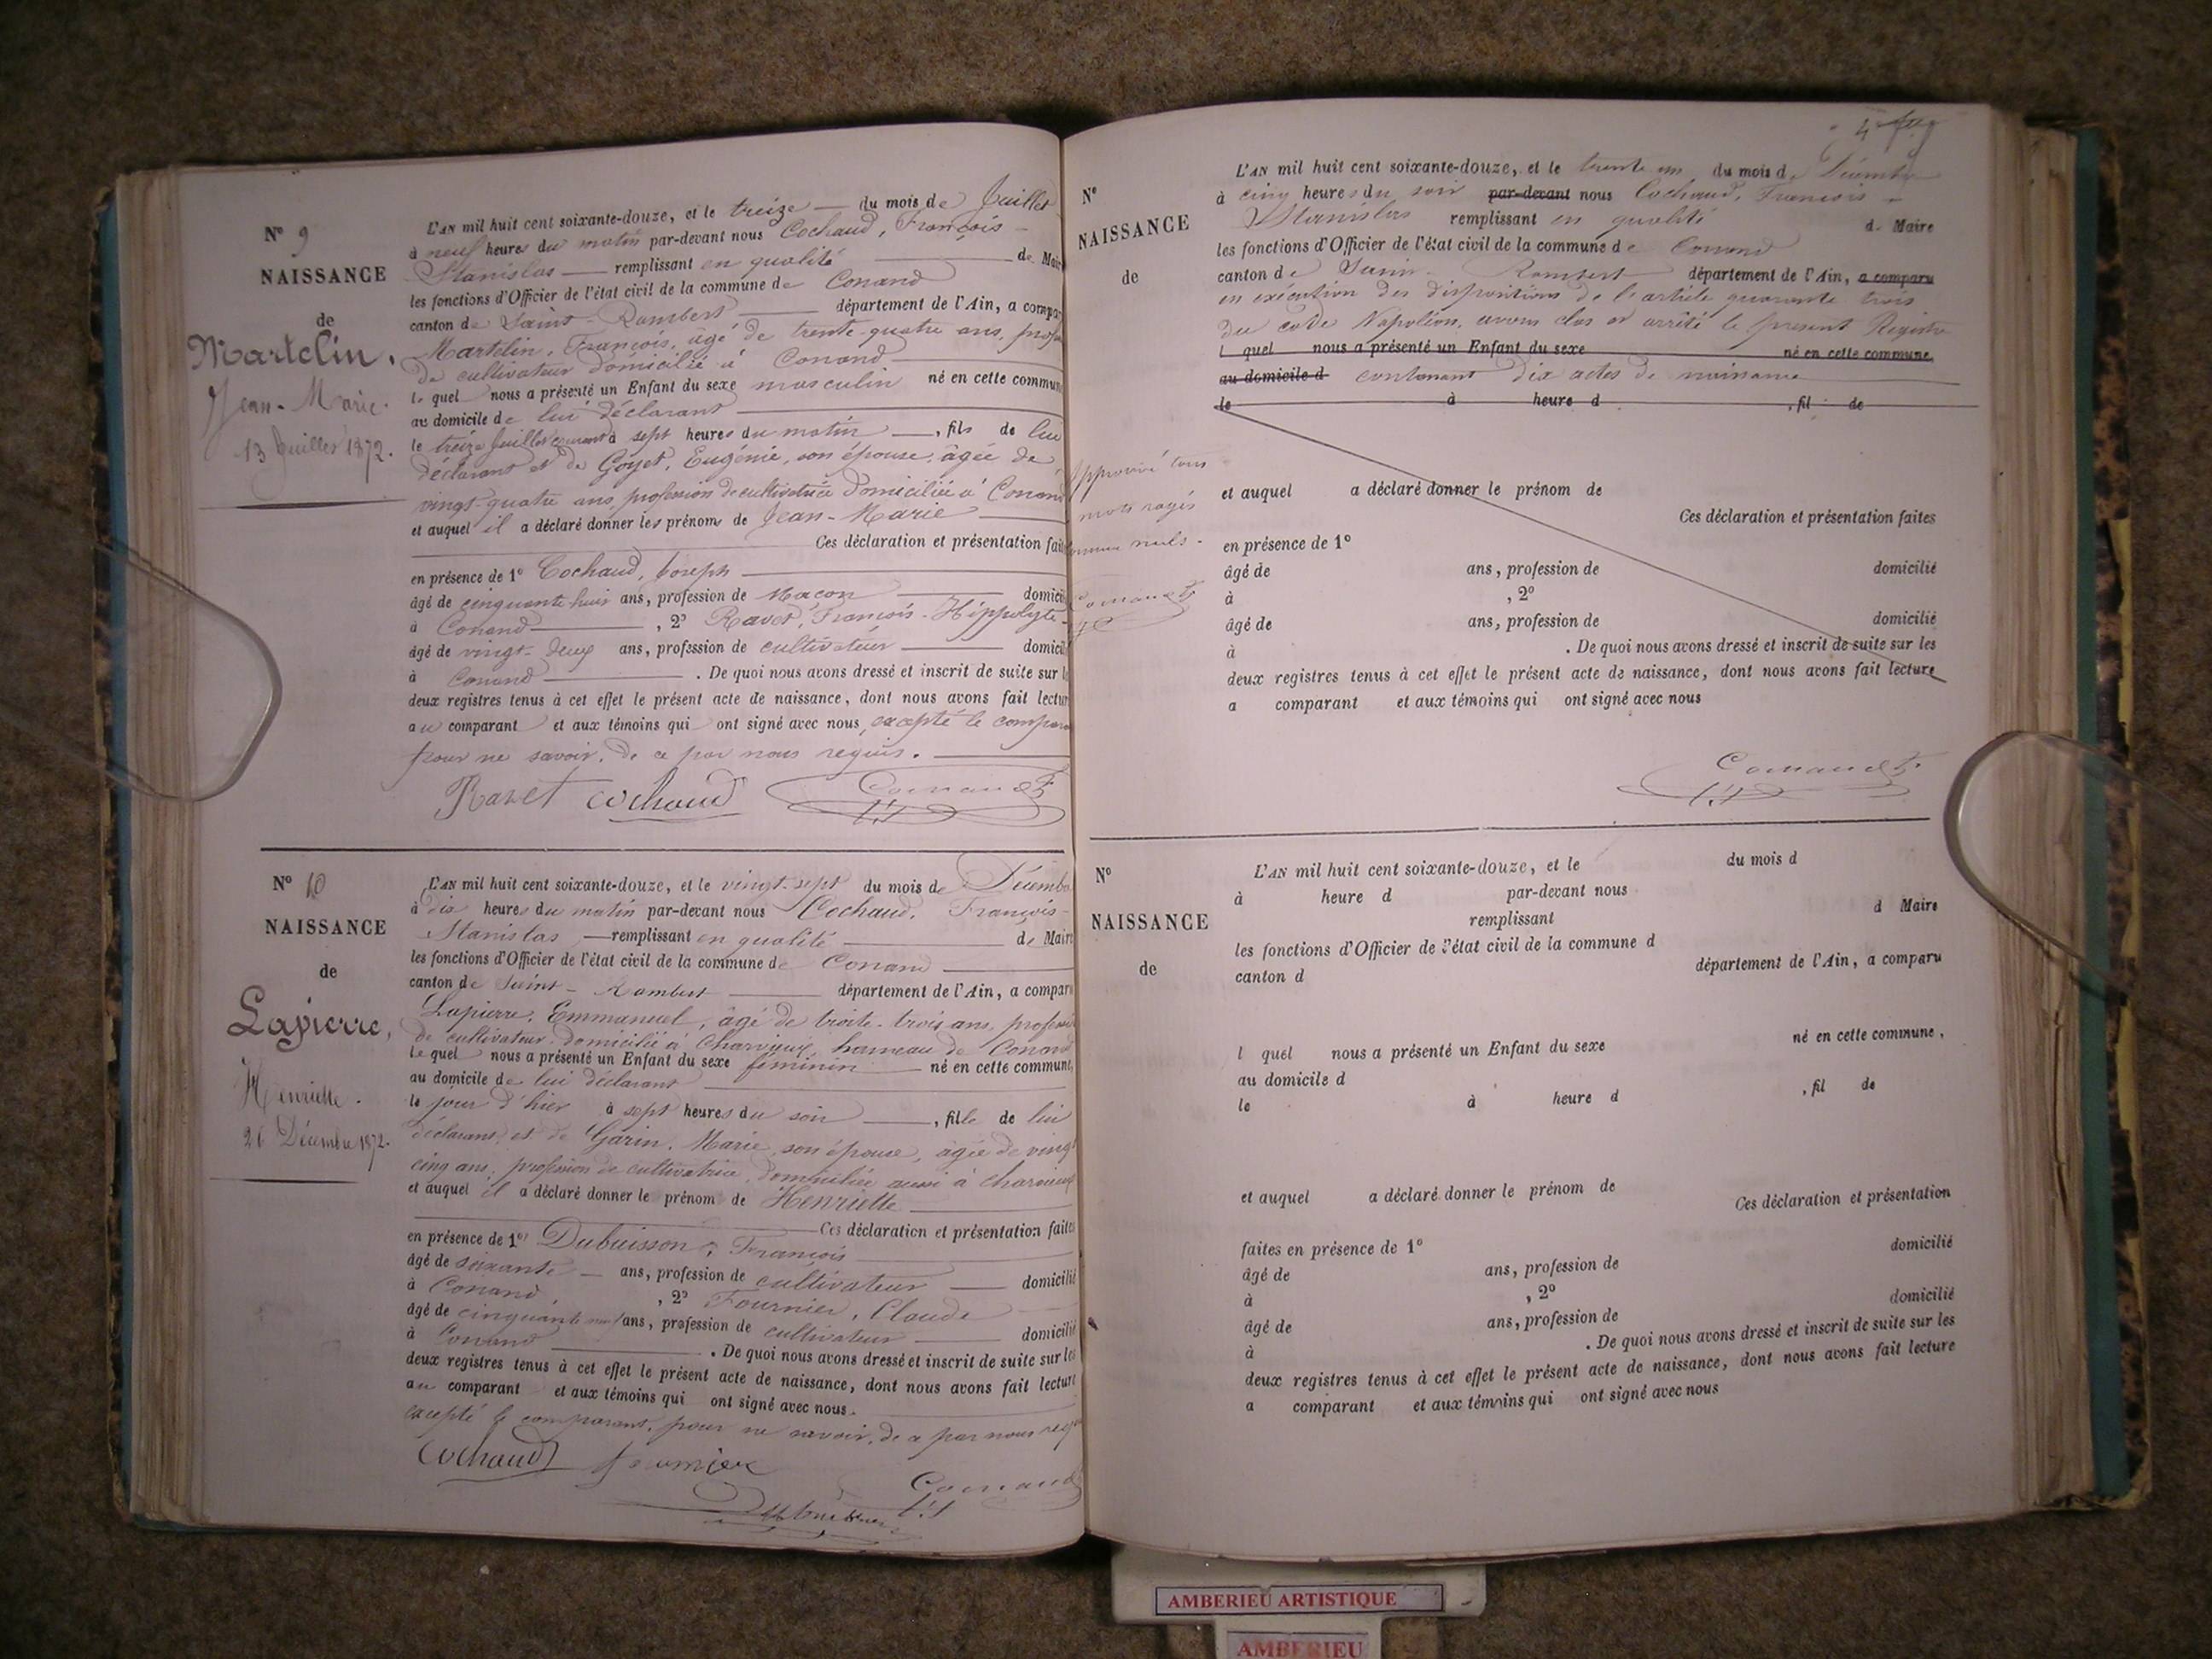 N° 9
NAISSANCE
de
Martelin,
Jean-Marie.
13 Juillet 1872.
L'AN mil huit cent soixante-douze, et le treize du mois de Juillet
à neuf heures du matin par-devant nous Cochaud, François-
Stanislas remplissant en qualité de Maire
les fonctions d'Officier de l'état civil de la commune de Conand
canton de Saint-Rambert département de l'Ain, a comparu
Martelin, François, âgé de trente-quatre ans, profes
de cultivateur domicilié à Conand
lequel nous a présenté un Enfant du sexe masculin né en cette commune
au domicile de lui déclarant
le treize Juillet courant à sept heures du matin, fils de lui
déclarant et de Goyet, Eugénie, son épouse, âgée de
vingt-quatre ans, profession de cultivatrice domiciliée à Conand
et auquel il a déclaré donner les prénoms de Jean-Marie
Ces déclaration et présentation fait
en présence de 1° Cochaud, Joseph
âgé de cinquante huit ans, profession de Maçon domici
à Conand, 2° Ravet, François-Hippolyte
âgé de vingt-deux ans, profession de cultivateur domicil
à Conand. De quoi nous avons dressé et inscrit de suite sur l
deux registres tenus à cet effet le présent acte de naissance, dont nous avons fait lectur
au comparant et aux témoins qui ont signé avec nous, excepté le compara
pour ne savoir, de ce par nous requis.
Ravet Cochaud
N° 10
NAISSANCE
de
Lapierre,
Henriette.
26 Décembre 1872.
L'AN mil huit cent soixante-douze, et le vingt-sept du mois de Décemb
à dix heures du matin par-devant nous Cochaud, François-
Stanislas remplissant en qualité de Maire
les fonctions d'Officier de l'état civil de la commune de Conand
canton de Saint-Rambert département de l'Ain, a comparu
Lapierre, Emmanuel, âgé de trente-trois ans, professi
de cultivateur domicilié à hameau de Conand
lequel nous a présenté un Enfant du sexe féminin né en cette commune,
au domicile de lui déclarant
le jour d'hier à sept heures du soir, fille de lui
déclarant et de Garin, Marie, son épouse, âgée de vingt
cinq ans, profession de cultivatrice, domiciliée aussi à
et auquel il a déclaré donner le prénom de Henriette
Ces déclaration et présentation faites
en présence de 1° Dubuisson, François
âgé de soixante ans, profession de cultivateur domicilié
à Conand, 2° Fournier, Claude
âgé de cinquante ans, profession de cultivateur domicilié
à Conand. De quoi nous avons dressé et inscrit de suite sur les
deux registres tenus à cet effet le présent acte de naissance, dont nous avons fait lecture
au comparant et aux témoins qui ont signé avec nous.
excepté le comparant, pour ne savoir, de ce par nous req
Cochaud fournier
N°
NAISSANCE
de
L'AN mil huit cent soixante-douze, et le trente un du mois d Décembre
à cinq heures du soir par-devant nous Cochaud, François-
Stanislas remplissant en qualité de Maire
les fonctions d'Officier de l'état civil de la commune de Conand
canton de Saint-Rambert département de l'Ain, a comparu
en exécution des dispositions de l'article quarante trois
du code Napoléon, avons clos et arrêté le présent Registre
l quel nous a présenté un Enfant du sexe né en cette commune,
au domicile d contenant dix actes de naissance
le à heure d , fil de
Approuvé tous
mots rayés
comme nuls.
et auquel a déclaré donner le prénom de
Ces déclaration et présentation faites
en présence de 1°
âgé de ans, profession de domicilié
à , 2°
âgé de ans, profession de domicilié
à . De quoi nous avons dressé et inscrit de suite sur les
deux registres tenus à cet effet le présent acte de naissance, dont nous avons fait lecture
a comparant et aux témoins qui ont signé avec nous
N°
NAISSANCE
de
L'AN mil huit cent soixante-douze, et le du mois d
à heure d par-devant nous
remplissant d Maire
les fonctions d'Officier de l'état civil de la commune d
canton d département de l'Ain, a comparu
l quel nous a présenté un Enfant du sexe né en cette commune,
au domicile d
le à heure d , fil de
et auquel a déclaré donner le prénom de
Ces déclaration et présentation
faites en présence de 1°
âgé de ans, profession de domicilié
à , 2°
âgé de ans, profession de domicilié
à . De quoi nous avons dressé et inscrit de suite sur les
deux registres tenus à cet effet le présent acte de naissance, dont nous avons fait lecture
a comparant et aux témoins qui ont signé avec nous
AMBERIEU ARTISTIQUE
AMBERIEU